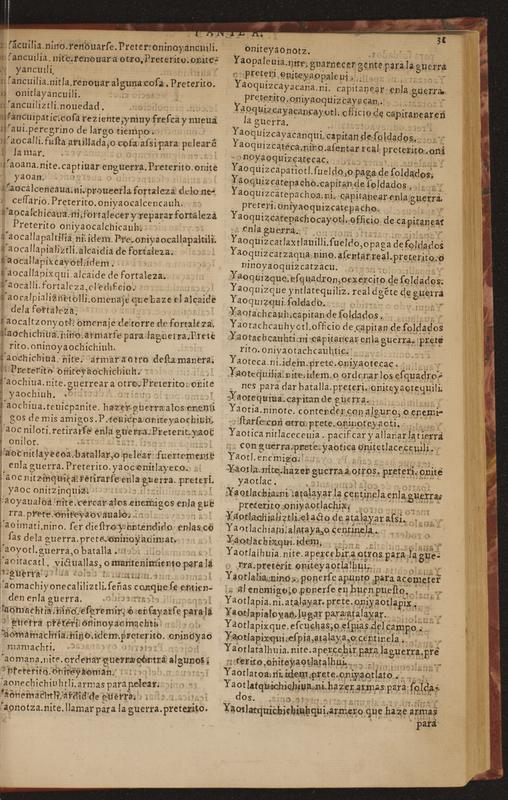 PARTE A.
31
ancuilia.nino.renouarse.Preter: oninoyancuili.
ancuilia.nite.renouar a otro, Preterito.onite-
yancuili.
ancuilia.nitla.renouar alguna cosa. Preterito.
onitlayancuili.
ancuiliztli.nouedad.
ancuipatic.cosa reziente, y muy fresca y nueua
aui.peregrino de largo tiempo.
aocalli.fusta artillada, o cosa assi para pelear
la mar.
aoana.nite.captiuar en guerra.Preterito.onite
yaoan.
aocalcencaua.ni.proueer la fortaleza de lo ne-
cessario.Preterito.oniyaocalcencauh.
aocalchicaua.ni.fortalecer y reparar fortaleza
Preterito oniyaocalchicauh.
aocallapaltilia.ni.idem.Pre.oniyaocallapaltili.
aocallapializtli.alcaidia de fortaleza.
aocallapixcayotl.idem.
aocallapixqui alcaide de fortaleza.
aocalli.fortaleza, el edificio.
aocalpialianetolli.omenaje que haze el alcaide
de la fortaleza.
aocaltzonyotl.omenaje de torre de fortaleza.
aochichiua.nino.armarse para la guerra.Prete
rito.oninoyaochichiuh.
aochichiua.nite.armar a otro desta manera.
Preterito oniteyaochichiuh.
aochiua.nite.guerrear a otro.Preterito.onite
yaochiuh.
aochiua.teuicpanite.hazer guerra a los enemi
gos de mis amigos.P.teuicpa oniteyaochiuh.
aoc niloti.retirarse en la guerra.Preterit.yaoc
onilot.
aoc nitlayecoa.batallar, o pelear fuertemente
en la guerra.Preterito.yaoc onitlayeco.
aoc nitzinquiça.retirarse en la guerra.preteri.
yaoc onitzinquiz.
aoyaualoa.nite.cercar a los enemigos en la gue
rra.prete.oniteyaoyaualo.
aoimati.nino.ser diestro y entendido en las co
sas de la guerra.prete.oninoyaoimat.
aoyotl.guerra, o batalla.
aoitacatl.victuallas, o mantenimiento para la
guerra
aomachiyonecaliliztli.señas con que se entien-
den en la guerra.
aomachtia.nino.esgremir, o ensayarse para la
guerra preteri oninoyaomachti
aomamachtia.nino.idem.preterito.oninoyao
mamachti.
aomana.nite.ordenar guerra contra algunos.
preterito.oniteyaoman.
aonechichiuhtli.armas para pelear.
aonemachtli.ardid de guerra.
aonotza.nite.llamar para la guerra.preterito.
oniteyaonotz.
Yaopaleuia.nite.guarnecer gente para la guerra
preteri oniteyaopaleui.
Yaoquizcayacana.ni. capitanear en la guerra.
preterito.oniyaoquizcayacan.
Yaoquizcayacancayotl.officio de capitanear en
la guerra.
Yaoquizcayacanqui.capitan de soldados.
Yaoquizcateca.nino.asentar real preterito.oni
noyaoquizcatecac.
Yaoquizcapatiotl.sueldo, o paga de soldados.
Yaoquizcatepacho.capitan de soldados
Yaoquizcatepachoa.ni. capitanear en la guerra.
preteri.oniyaoquizcatepacho.
Yaoquizcatepachocayotl.officio de capitanear
en la guerra.
Yaoquizcatlaxtlauilli.sueldo, o paga de soldados
Yaoquizcatzaqua.nino.asentar real.preterito.o
ninoyaoquizcatzacu.
Yaoquizque.esquadron, o exercito de soldados.
Yaoquizque yntlatequiliz.real de gēte de guerra
Yaoquizqui.soldado.
Yaotachcauh.capitan de soldados.
Yaotachcauhyotl.officio de capitan de soldados
Yaotachcauhti ni capitanear en la guerra. prete
rito.oniyaotachcauhtic.
Yaoteca.ni.idem.prete.oniyaotecac.
Yaotequilia.nite.idem.o ordenar los esquadro-
nes para dar batalla.preteri.oniteyaotequili.
Yaotequiua.capitan de guerra.
Yaotia.ninote.contender con alguno, o enemi-
starse con otro prete.oninoteyaoti.
Yaotica nitlacecenia.pacificar y allanar la tierra
con guerra.prete.yaotica onitetlacecenili.
Yaotl.enemigo.
Yaotla.nite.hazer guerra a otros.preteri.onite
yaotlac.
Yaotlachia.ni atalayar la centinela en la guerra.
preterito oniyaotlachix.
Yaotlachializtli.el acto de atalayar assi.
Yaotlachiani.atalaya, o centinela.
Yaotlachixqui.idem.
Yaotlalhuia.nite.apercebir a otros para la gue-
rra.preterit oniteyaotlalhui.
Yaotlalia.nino. ponerse a punto para acometer
al enemigo, o ponerse en buen puesto.
Yaotlapia.ni.atalayar.prete.oniyaotlapix.
Yaotlapialoyan.lugar para atalayar.
Yaotlapixque.escuchas, o espias del campo.
Yaotlapixqui.espia, atalaya, o centinela.
Yaotlatalhuia.nite.apercebir para la guerra.pre
terito.oniteyaotlatalhui.
Yaotlatoa.ni.idem.prete.oniyaotlato.
Yaotlatquichichiua.ni.hazer armas para solda-
dos.
Yaotlatquichichiuhqui.armero que haze armas
para